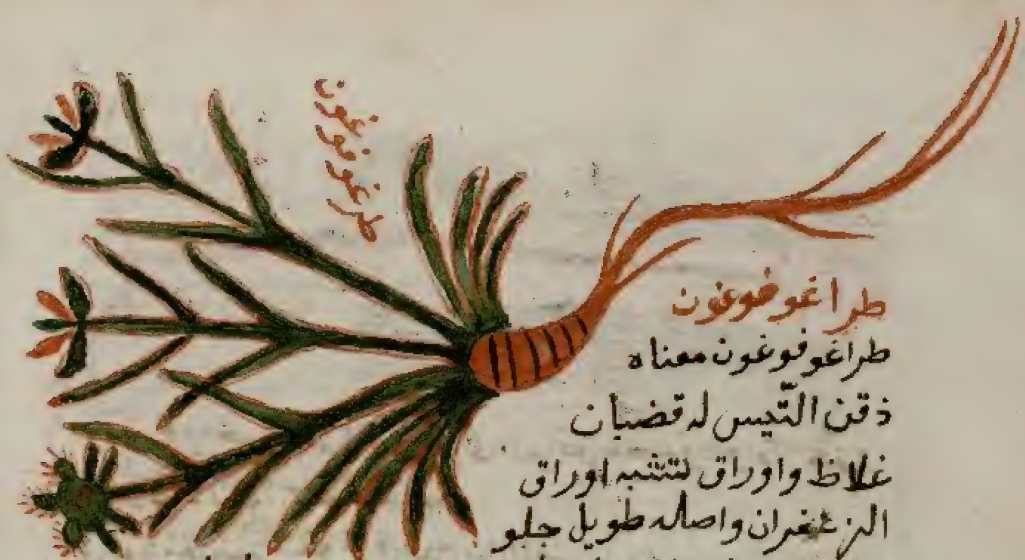 طراغوفوغون
طراغوفوغون
طراغوفوغون معناه
ذقن التّيس له قضبان
غلاظ واوراق تشبه اوراق
الزعفران واصله طويل حلو